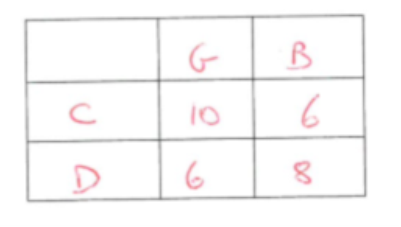 G B
C 10 6
D 6 8